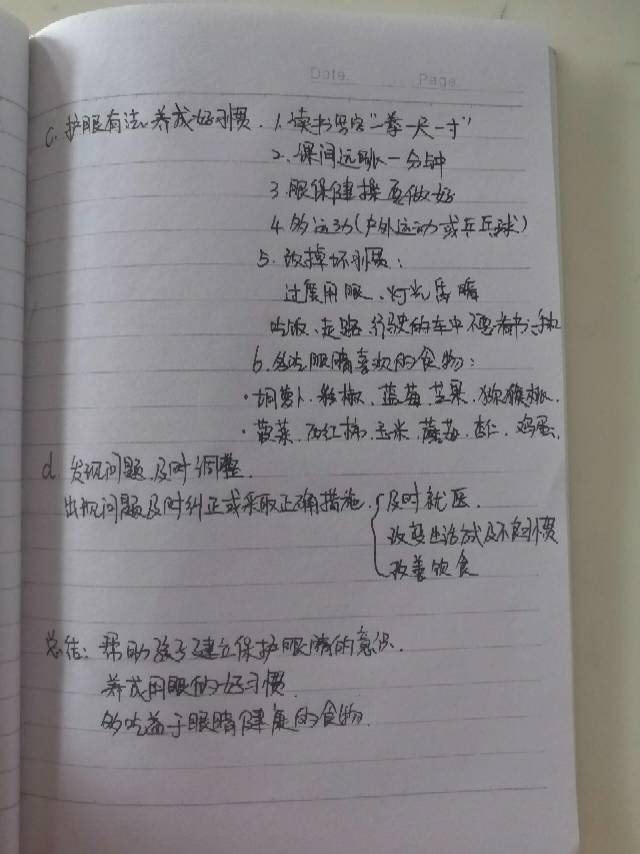 Date. Page
c. 护眼有法, 养成好习惯. 1. 读书写字"一拳一尺一寸"
2. 课间远眺一分钟
3 眼保健操要做好
4. 多运动(户外运动或乒乓球)
5. 改掉坏习惯:
过度用眼、灯光昏暗
吃饭、走路、行驶的车中不要看书、手机
6. 多吃眼睛喜欢的食物:
· 胡萝卜、彩椒、蓝莓、芒果、猕猴桃.
· 菠菜、西红柿、玉米、蘑菇、杏仁、鸡蛋.
d. 发现问题, 及时调整.
出现问题及时纠正或采取正确措施. { 及时就医.
改变生活方式及不良习惯
改善饮食
总结: 帮助孩子建立保护眼睛的意识.
养成用眼的好习惯.
多吃益于眼睛健康的食物.